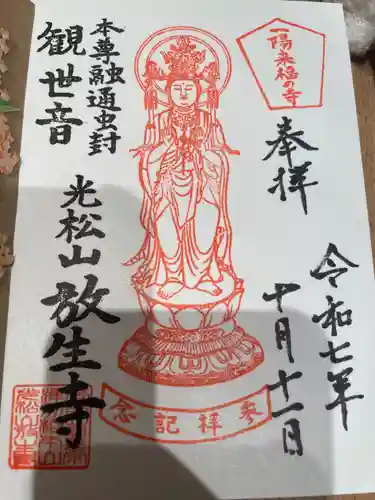 一陽来福の寺
奉拝
令和七年
十月十一日
本尊融通虫封
観世音
光松山放生寺
参拝記念